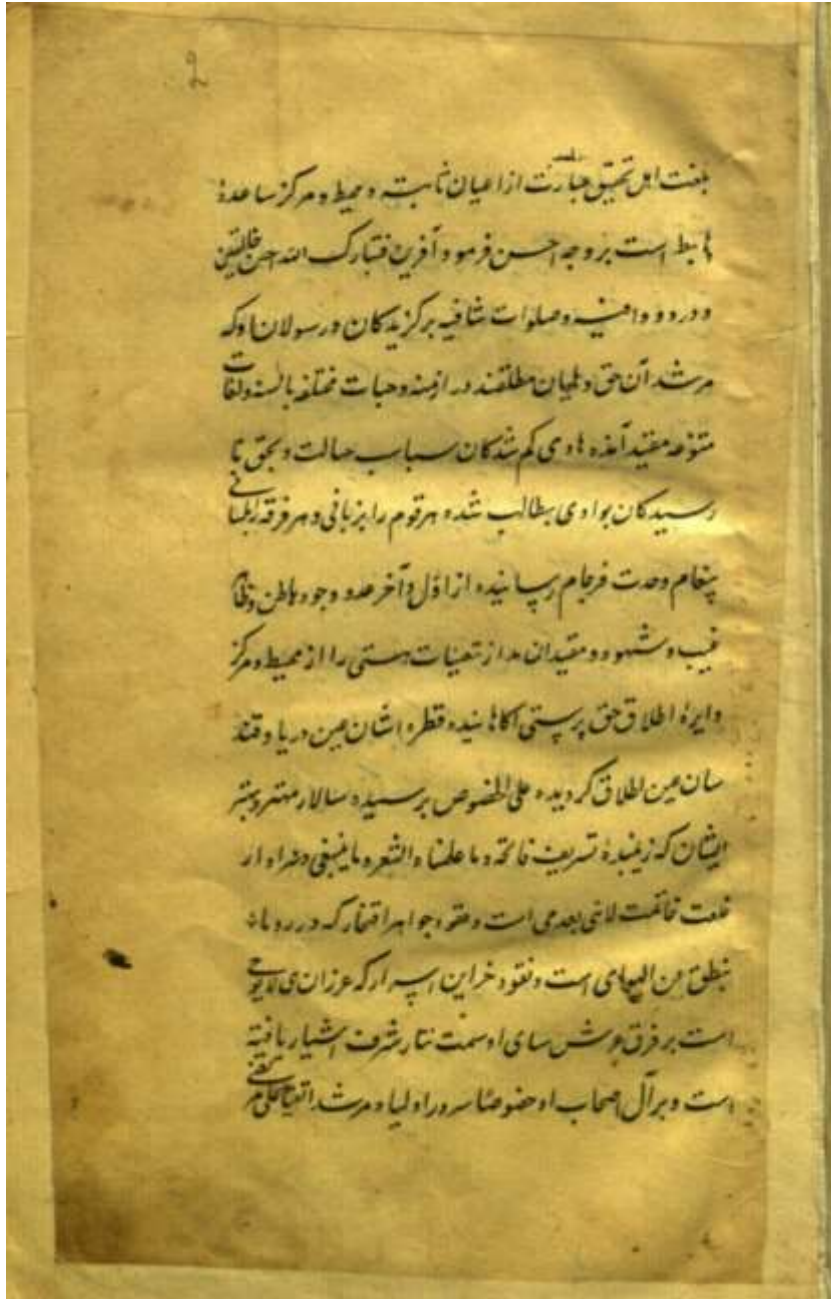 ۲
بلغت اهل تحقیق عبارت از اعیان ثابته و محیط و مرکز ساعدهٔ
هابط است بر وجه احسن فرمود آفرین فتبارک الله احسن خالقین
و درود وافیه و صلوات شافیه برگزیدکان و رسولان او که
مرشد آن حق و ملهیان مطلقند در ازمنه و حیات مختلفه بالسنه و لغات
متنوعه مفید آمده هادی کم شدکان سباب و بحق نا
رسیدکان بوادی بطالب شده هر قوم را بزبانی و هر فرقه را بلسانی
پیغام وحدت فرجام رسانیده از اول و آخر عدد وجود باطن و ظاهر
غیب و شهود و مقیدان تعینات هستی را از محیط و مرکز
دایرهٔ اطلاق حق پرستی آکاهانیده قطره اشان عین دریا و قند
سان عین اطلاق کردیده علی الخصوص بر سید و سالار مهتر و بهتر
ایشان که زیبندهٔ تشریف فاتحه و ما علمناه الشعر و ما ینبغی
خلعت خاتمت لانبی بعدی است و عقود جواهر افتخار که در
ینطق عن الهوای است و نقود خزاین اسرار که
است بر فرق عرش سای او سمت نثار شرف یافته
است و بر آل اصحاب او خصوصا سرور اولیا و مرشد اتقیا علی مرتضی